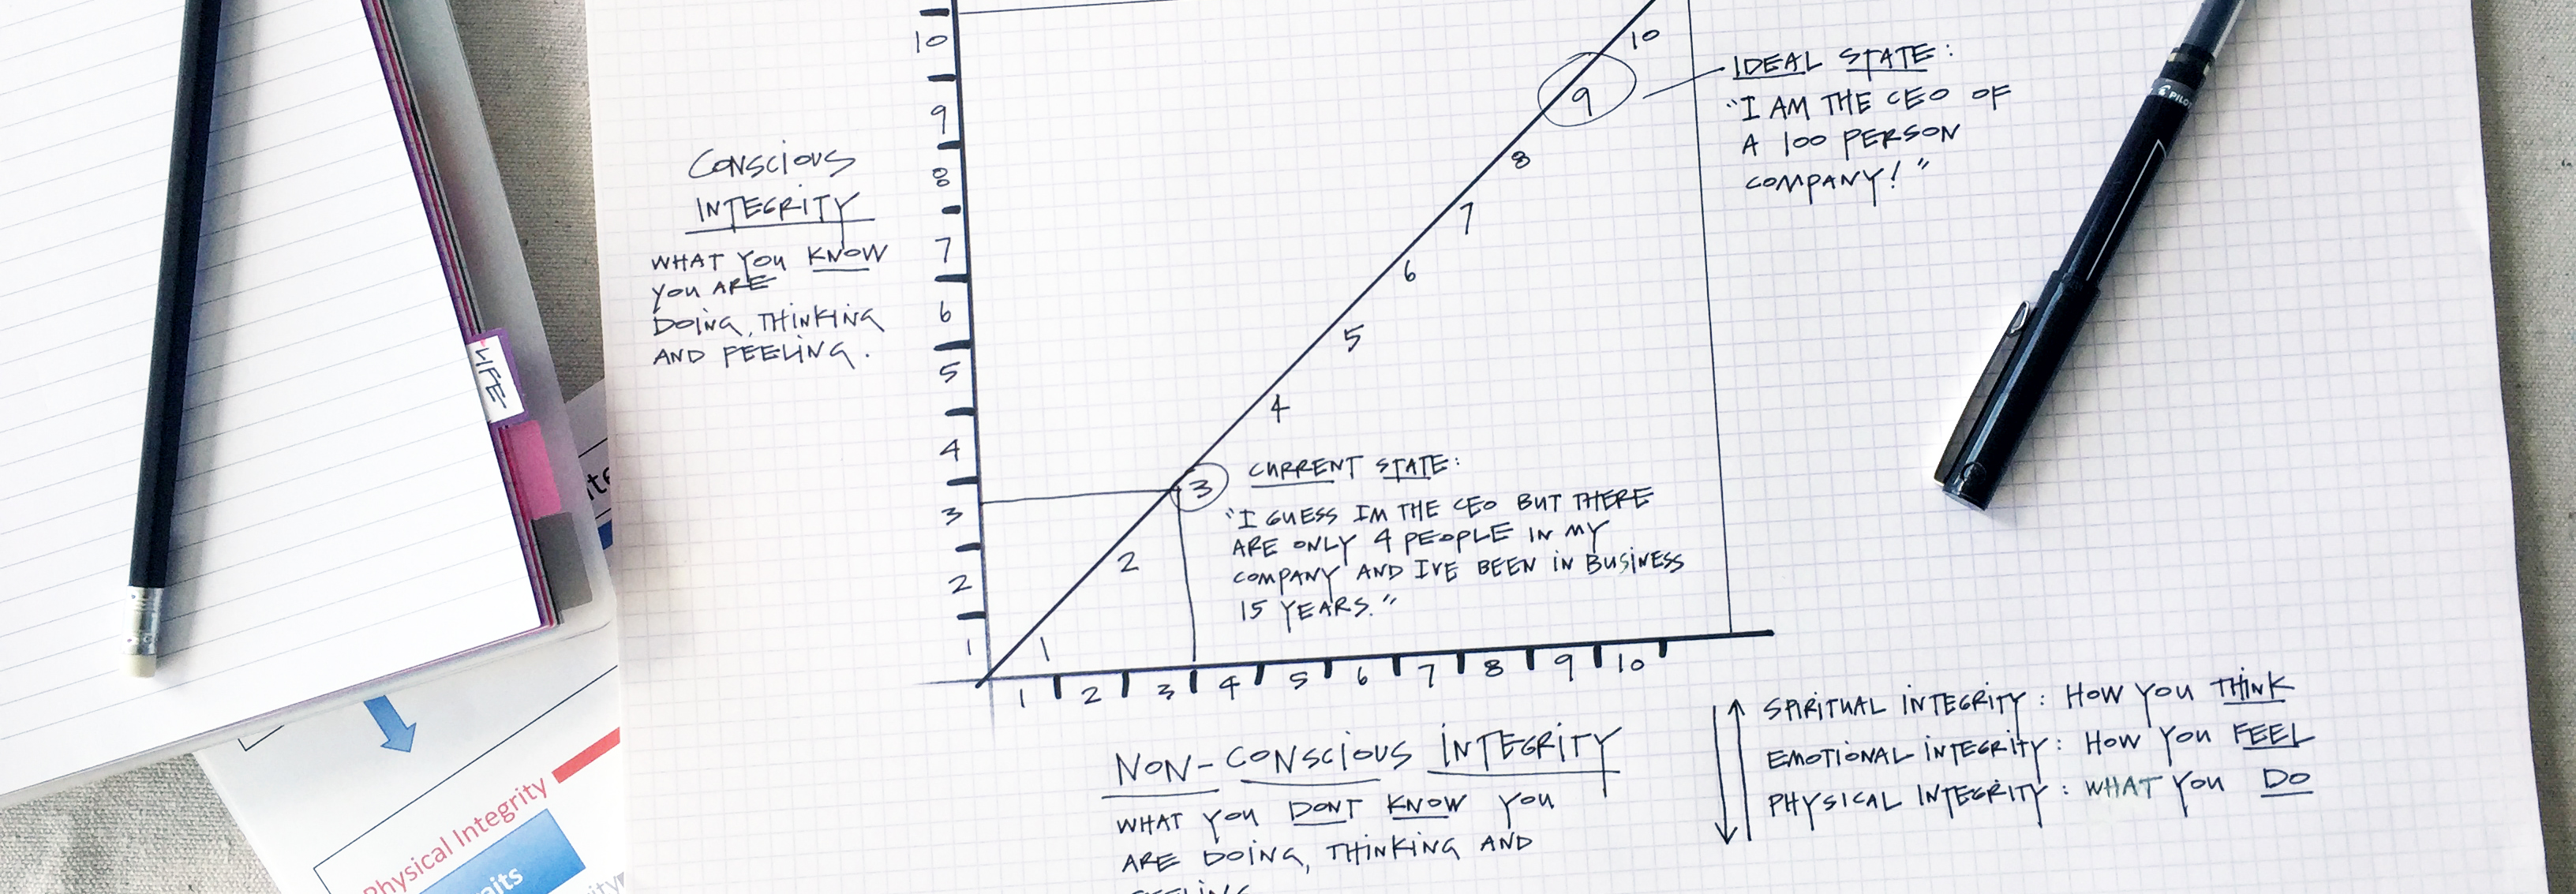 10
9
8
7
6
5
4
3
2
1
CONSCIOUS
INTEGRITY
WHAT YOU KNOW
YOU ARE
DOING, THINKING
AND FEELING.
10
9
8
7
6
5
4
3
2
1
IDEAL STATE:
"I AM THE CEO OF
A 100 PERSON
COMPANY!"
CURRENT STATE:
"I GUESS IM THE CEO BUT THERE
ARE ONLY 4 PEOPLE IN MY
COMPANY AND IVE BEEN IN BUSINESS
15 YEARS."
1 2 3 4 5 6 7 8 9 10
NON-CONSCIOUS INTEGRITY
WHAT YOU DONT KNOW YOU
ARE DOING, THINKING AND
FEELING
SPIRITUAL INTEGRITY: HOW YOU THINK
EMOTIONAL INTEGRITY: HOW YOU FEEL
PHYSICAL INTEGRITY: WHAT YOU DO
LIFE
Physical Integrity
PILOT